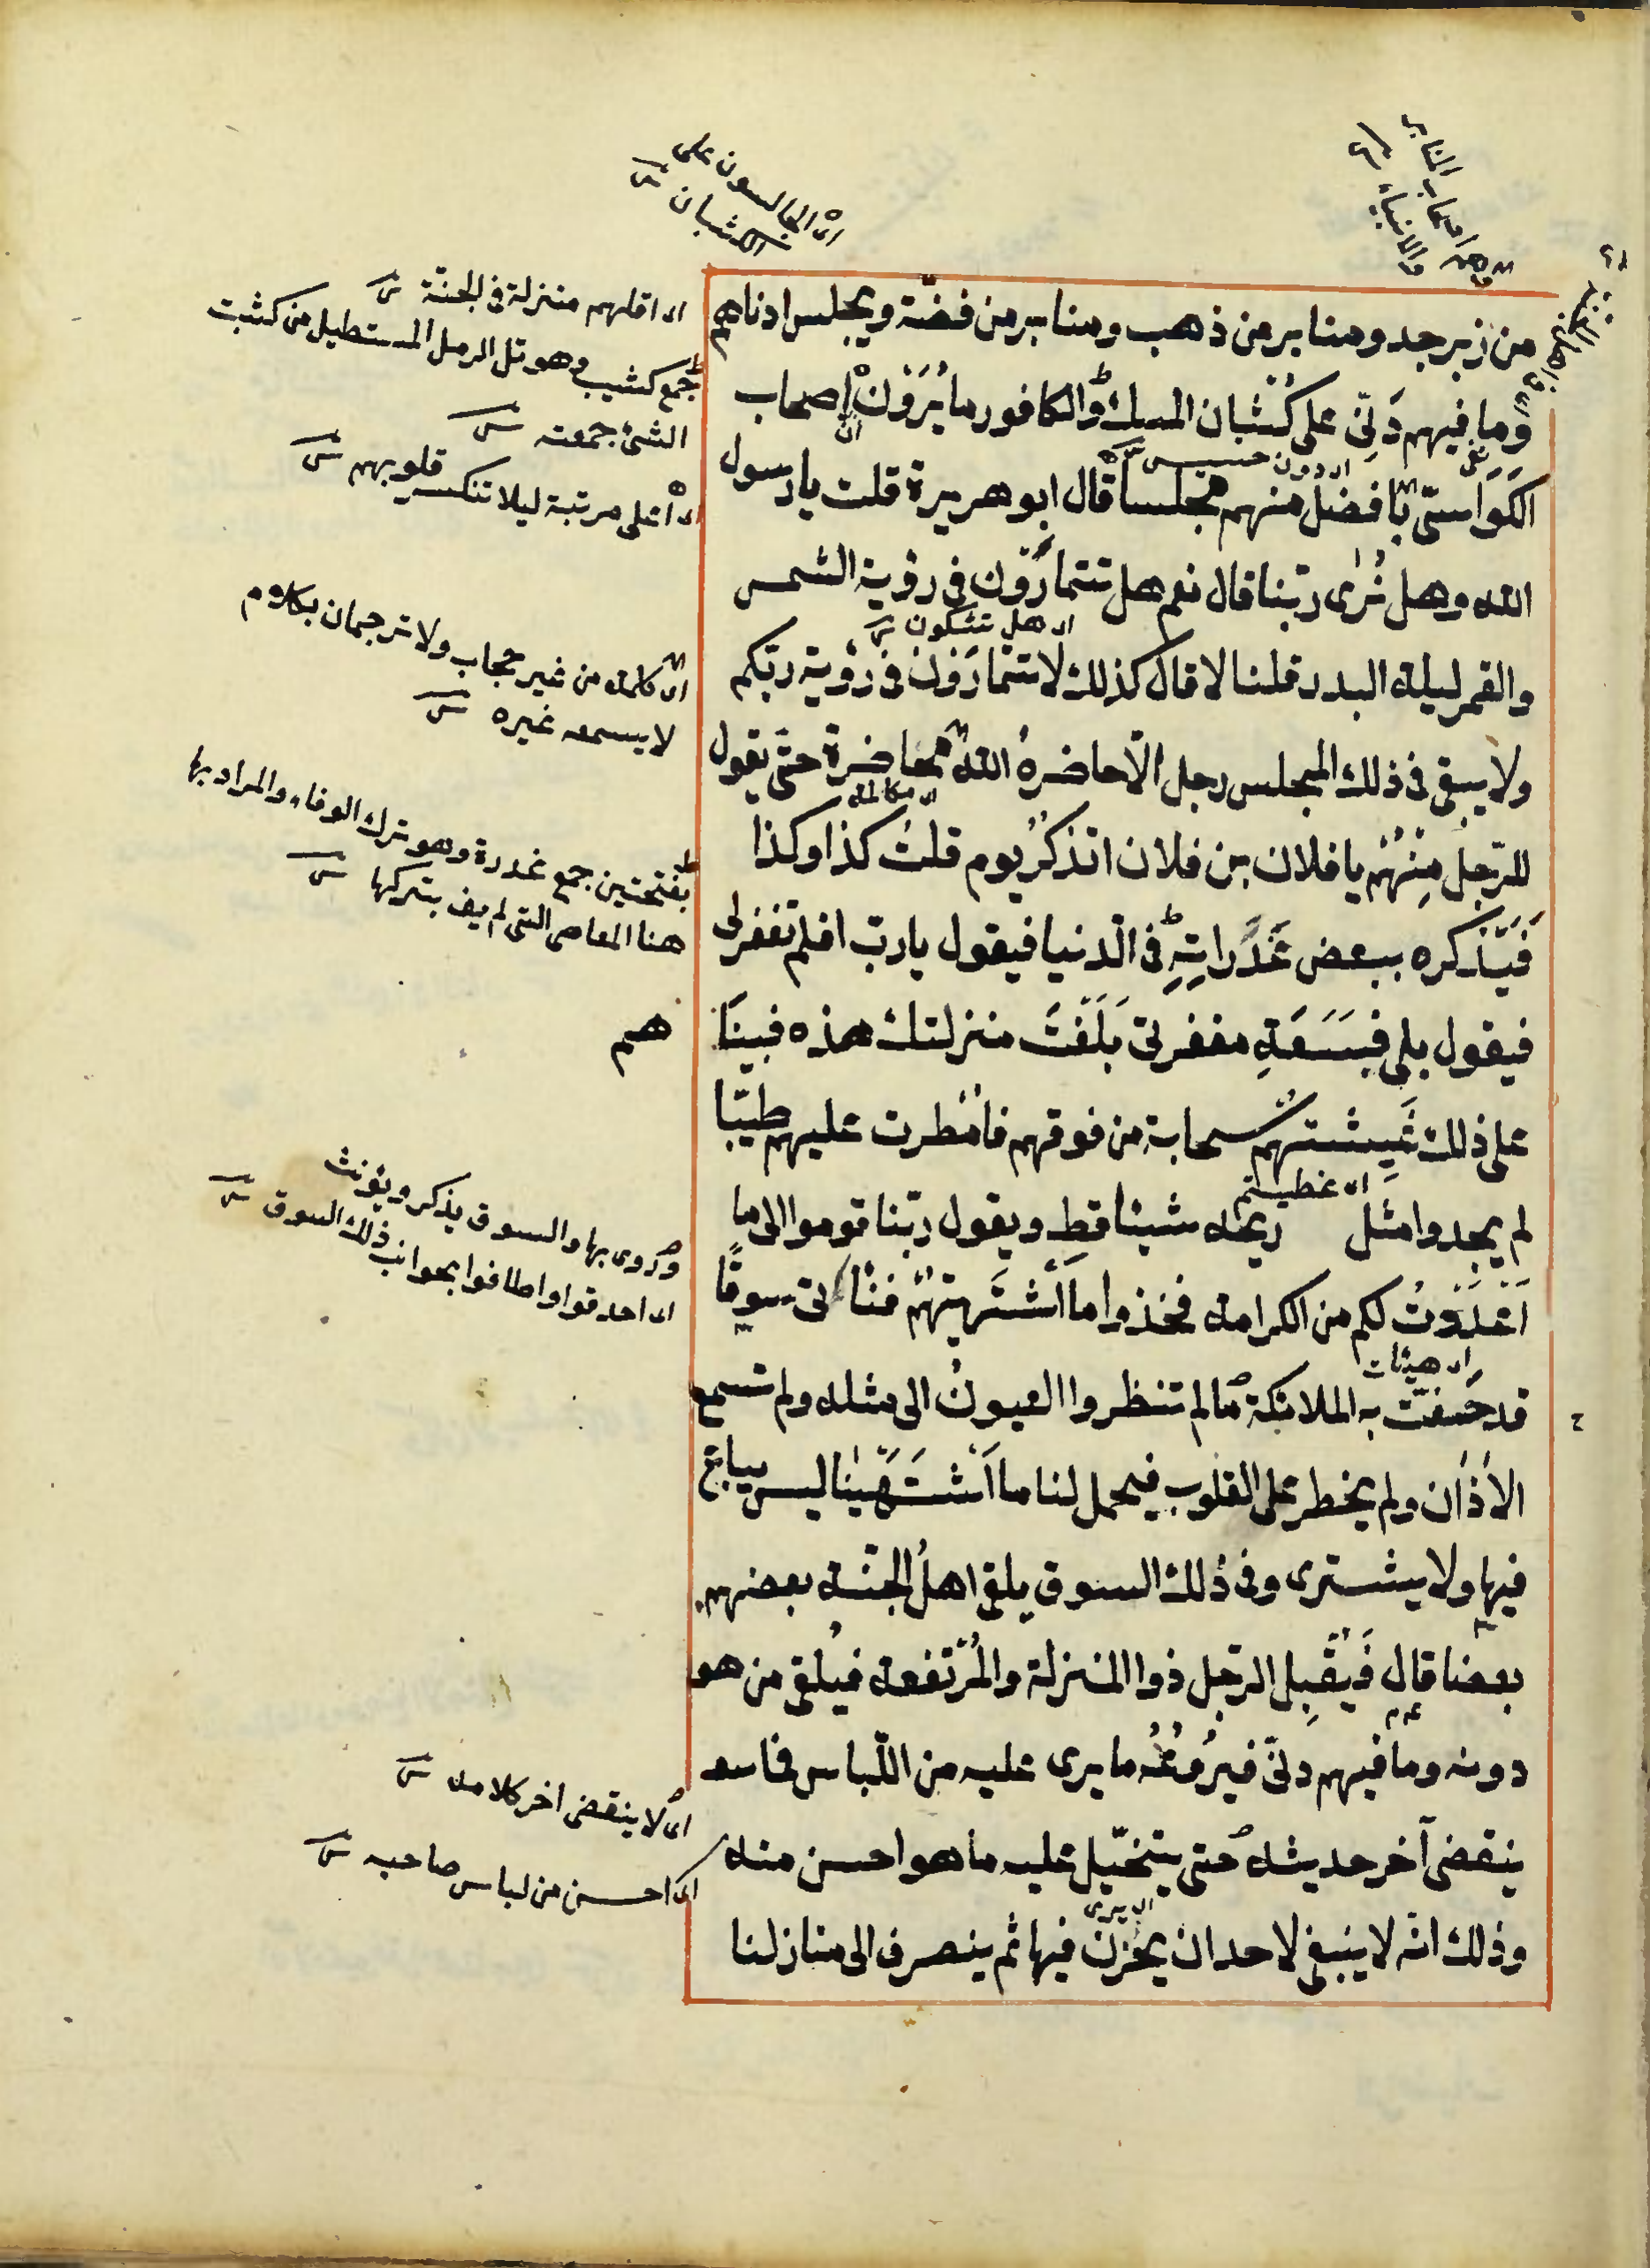 من زبرجد ومنابر من ذهب ومنابر من فضّة ويجلس ادناهم
وما فيهم دَنِيّ على كُثْبان المسك والكافور ما يُرَوْنَ اصحاب
ان
الكَرَاسيّ بافضل منهم مجلسا قال ابو هريرة قلت يا رسول
الله وهل نُرٰى ربّنا قال نعم هل تتمارَوْن في رؤية الشمس
اى هل تشكون
والقمر ليلة البدر قلنا لا قال كذلك لا تتمارَوْن في رؤية ربّكم
ولا يبقى في ذلك المجلس رجل الّا حاضره اللهُ محاضرة حتّى يقول
اى مكالمة
للرّجل مِنْهُم يا فلان بن فلان اتذكر يوم قلت كذا وكذا
فَيَذكره ببعض غَدَراتِهِ في الدنيا فيقول يا ربّ افلم تغفر لى
فيقول بلى فبِسَعَةِ مغفرتى بَلَغْتَ منزلتك هذه فبينَا
هم
على ذلك غَيِشتهم سحابة من فوقهم فامْطرت عليهم طيبًا
اى غطيتهم
لم يجدوا مثل ريحه شيئا قط ويقول ربّنا قوموا الى ما
اَعْدَدْتُ لكم من الكرامة فخذوا ما اَشْتَهيتهُم فنأتى سوقًا
اى هيئات
قد حَفّت به الملائكة ما لم تنظروا العيون الى مثله ولم تسمع
الاٰذٰان ولم يخطر على القلوب فيحمل لنا ما اَشْتَهَيْنا ليس يباع
فيها ولا يشترى وفى ذلك السوق يلقى اهل الجنّة بعضهم
بعضا قال فَيُقْبِل الرّجل ذوا المنزلة والمُرْتفعة فيلقى من هو
دونه وما فيهم دنىّ فيرُوعُهُ ما يرى عليه من اللّباس فما
ينقضى آخر حديثه حتى يتخيّل عليه ما هو احسن منه
وذلك انّه لا ينبغى لاحد ان يحْزن فيها ثم ينصرف الى منازلنا
اى الجالسون على
الكثبان
اى اقلهم منزلة في الجنة
جمع كثيب وهو تل الرمل المستطيل من كثبت
الشئ جمعته
اى اعلى مرتبة ليلا تنكسر قلوبهم
اى كلمه من غير حجاب ولا ترجمان بكلام
لا يسمعه غيره
بفتحتين جمع غدرة وهو ترك الوفاء والمراد بها
هنا المعاصى التى لم يف بتركها
وروى بها والسوق يذكر ويؤنث
اى احدقوا واطافوا بجوانب ذلك السوق
اى لا ينقضى اخر كلامه
اى احسن من لباس صاحبه